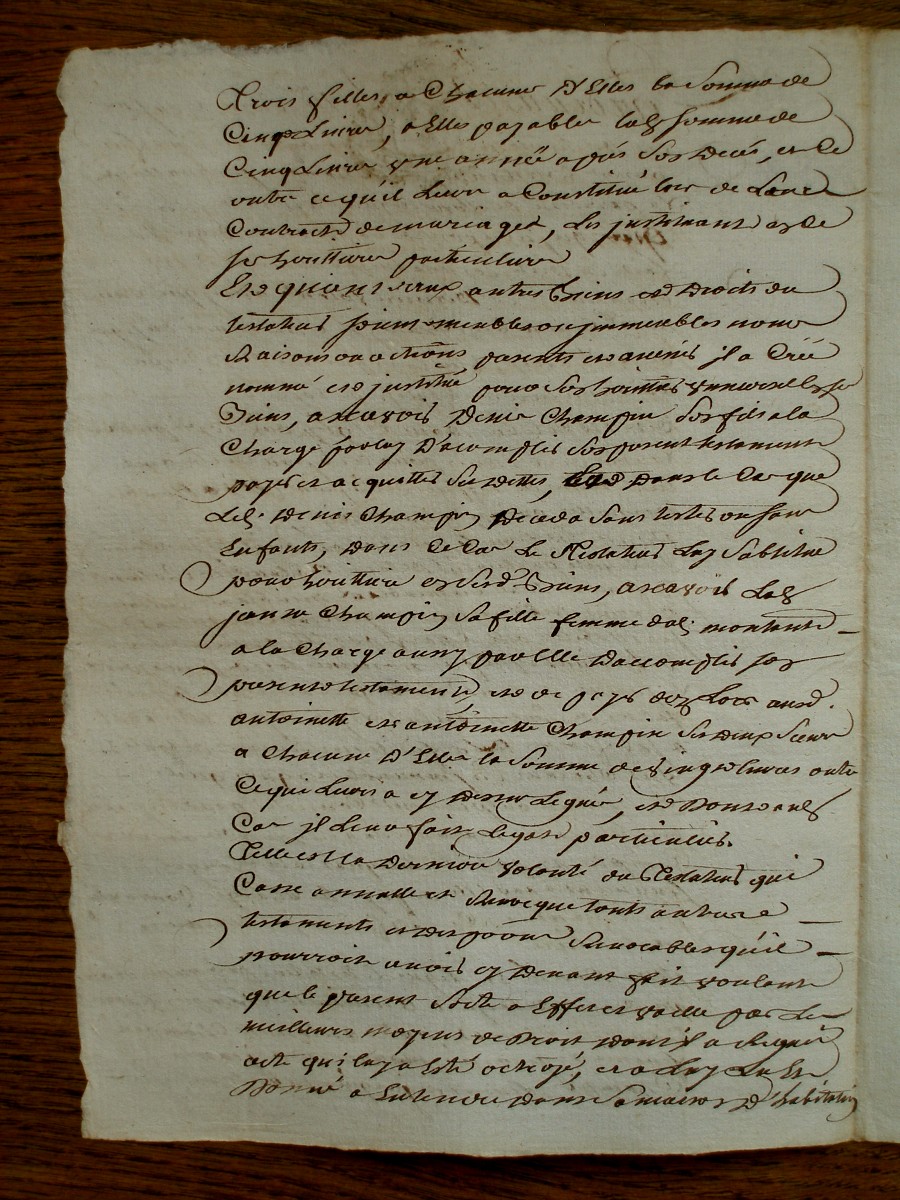 Trois filles, a Chacune d'Elles la Somme de
Cinq Livres, a Elles payable lad. somme de
Cinq Livres une année après Son Decés, et Ce
outre ce qu'il Leur a Constitué lors de Leur
Contracts de mariages, Les justituant en Ce
ses heritieres particulieres
Et quant aux autres Biens et Droits du
testateur soient meubles ou jmmeubles noms
Raisons ou actions presents et avenir jl a Créé
nommé et justitué pour Son heritier universel Esd.
Biens, ascavoir Denis Champin Son fils a la
Charge par luy D'acomplir Son present testament
payer et acquitter Ses Dettes, Et Dans le Cas que
Led. Denis Champin Deceda Sans tester ou sans
Enfants, Dans Ce Cas Le Testateur Luy Substitue
pour heritiere en Sesd. Biens, ascavoir Lad.
janne Champin Sa fille femme dud. montant
a la Charge aussy par Elle D'accomplir Son
present testament, et de payer dez Lors ausd.
antoinette et antoinette Champin Ses Deux Sœurs
a Chacune D'Elles la Somme de Cinq Livres outre
Ce qui Leurs a cy Dessus Legué, et Dont aud.
Cas jl Leur fait Legats particuliers.
Telle est la Derniere volonté du Testateur qui
Casse annulle et Revoque touts autres
testaments et Dispositions Revocables qu'il
pourroit avoir cy Devant fait voulant
que le present Sorte a Effet et vaille par Les
meilleurs moyens de Droit Dont jl a Requis
acte qui luy a Esté octroyé, et a Luy Lu Et
Donné a Entendre Dans Sa maison D'habitation